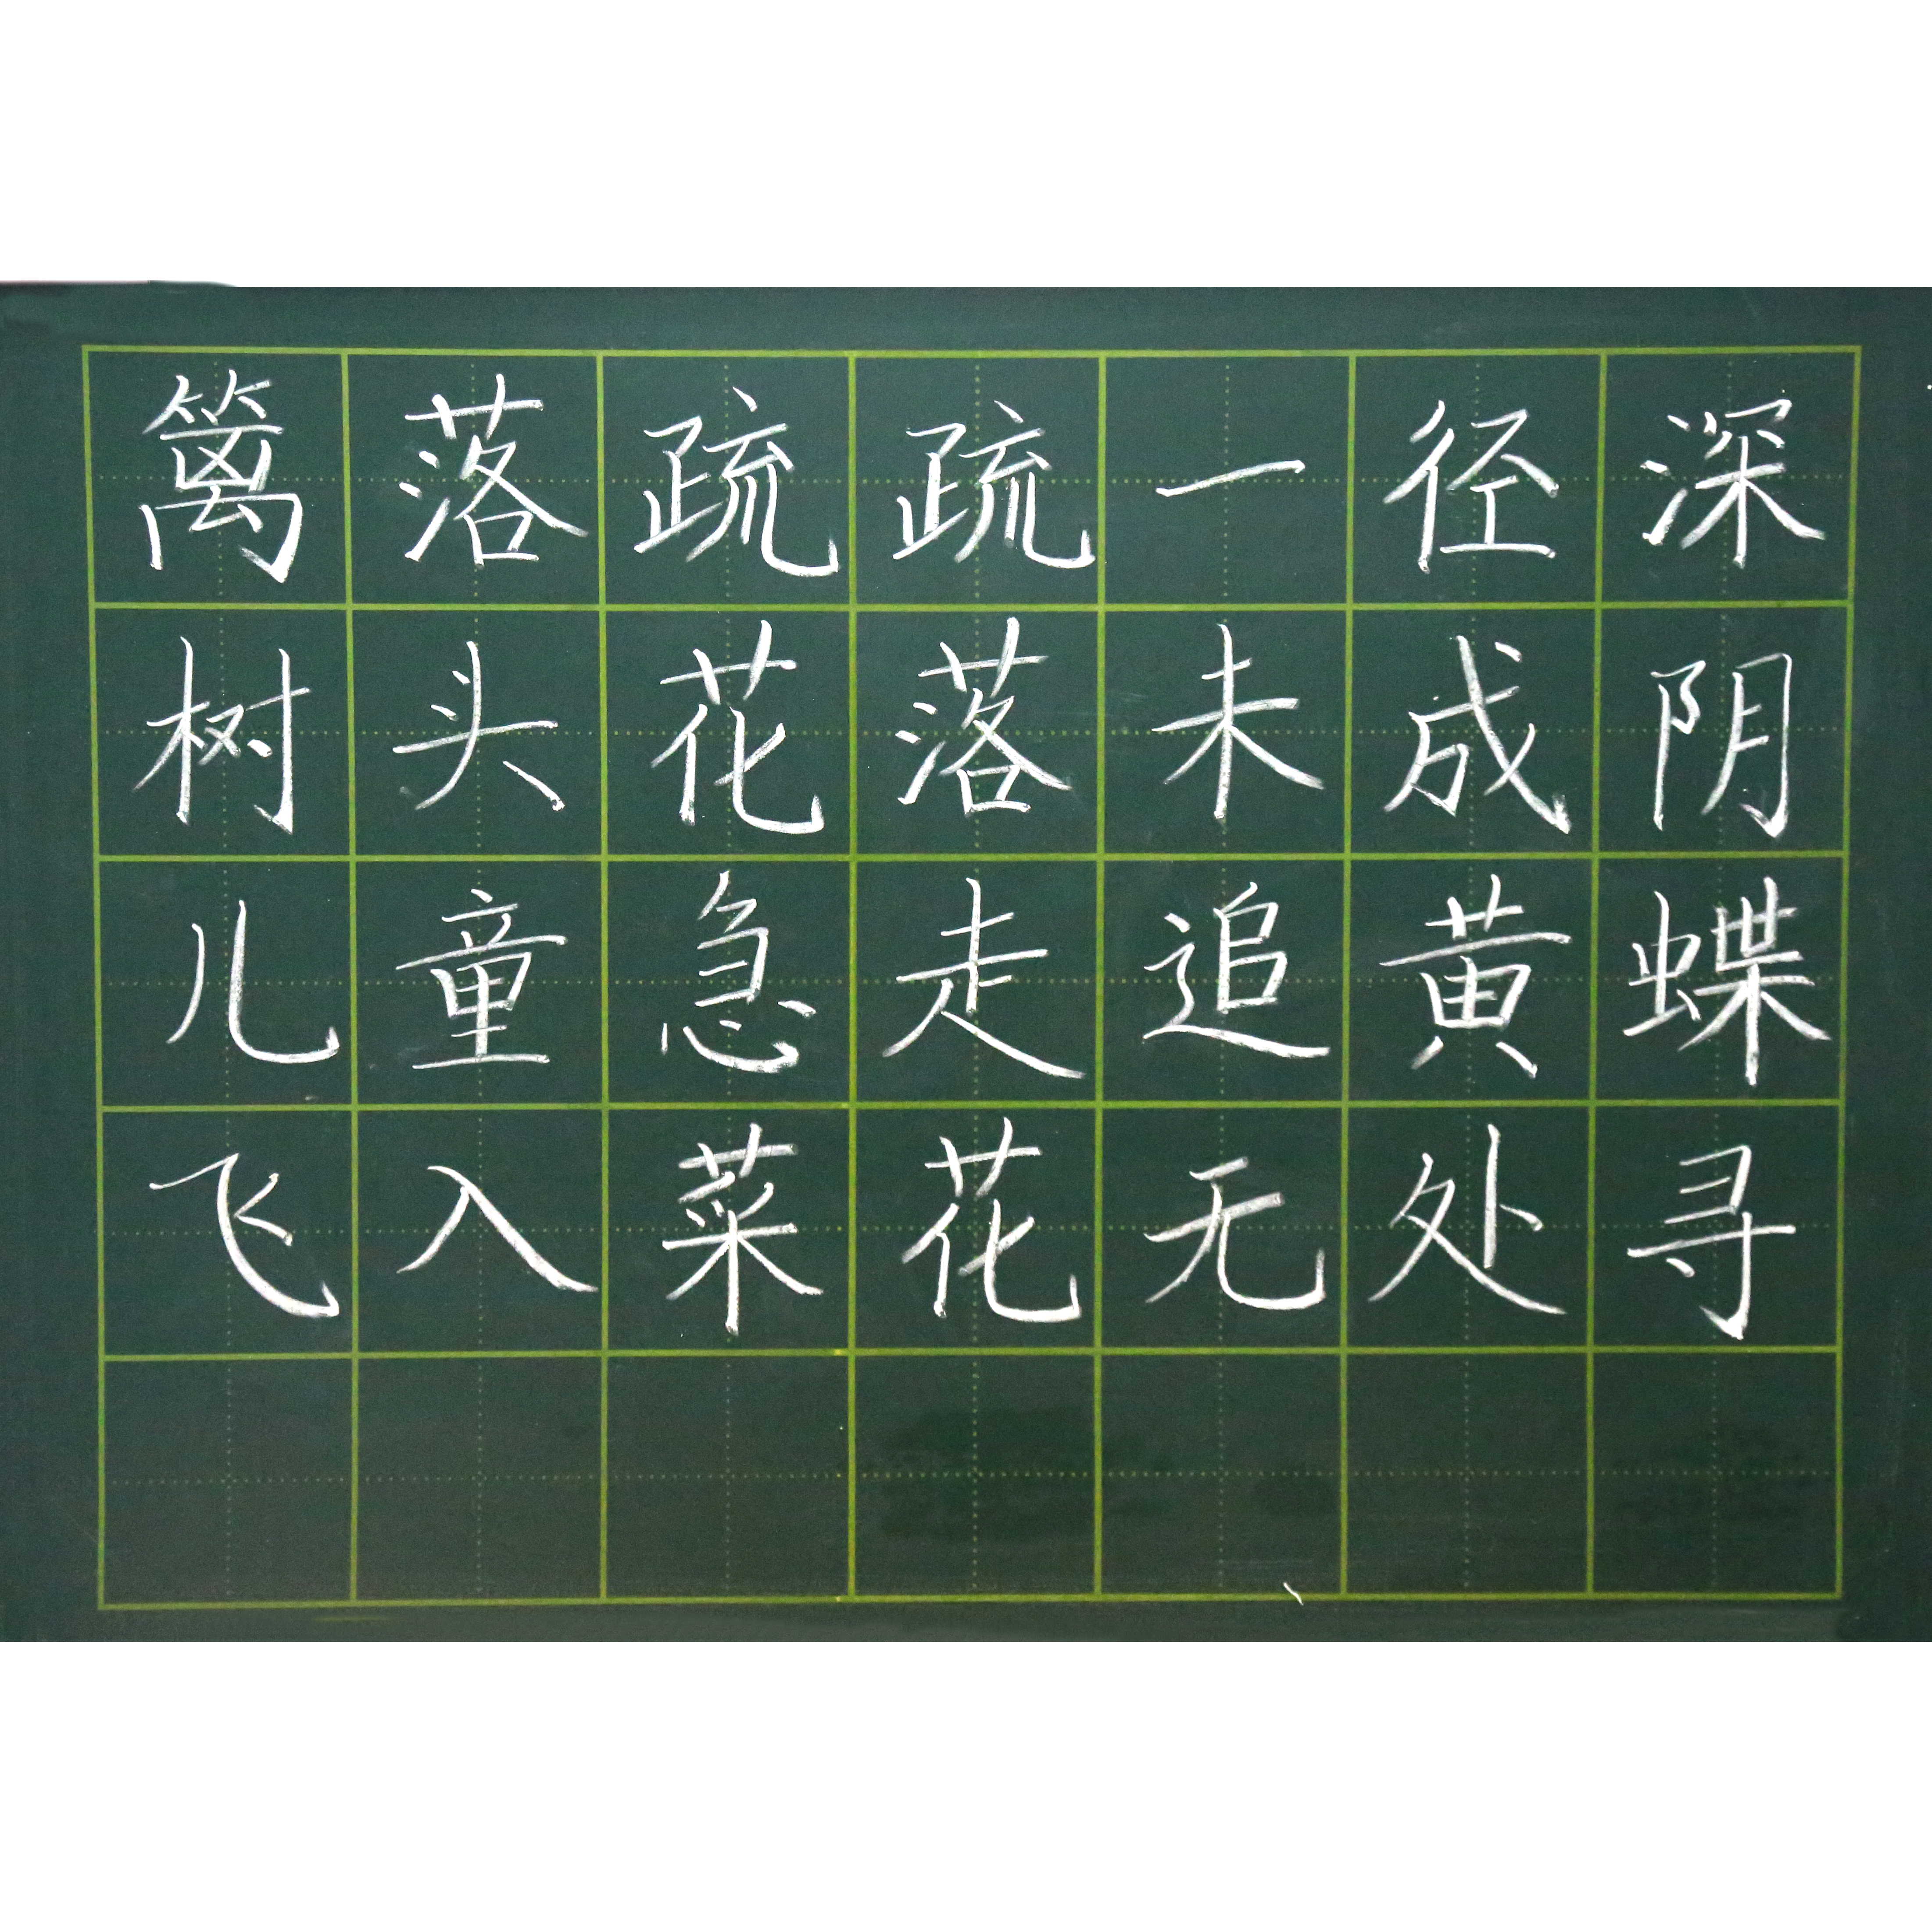 篱落疏疏一径深
树头花落未成阴
儿童急走追黄蝶
飞入菜花无处寻